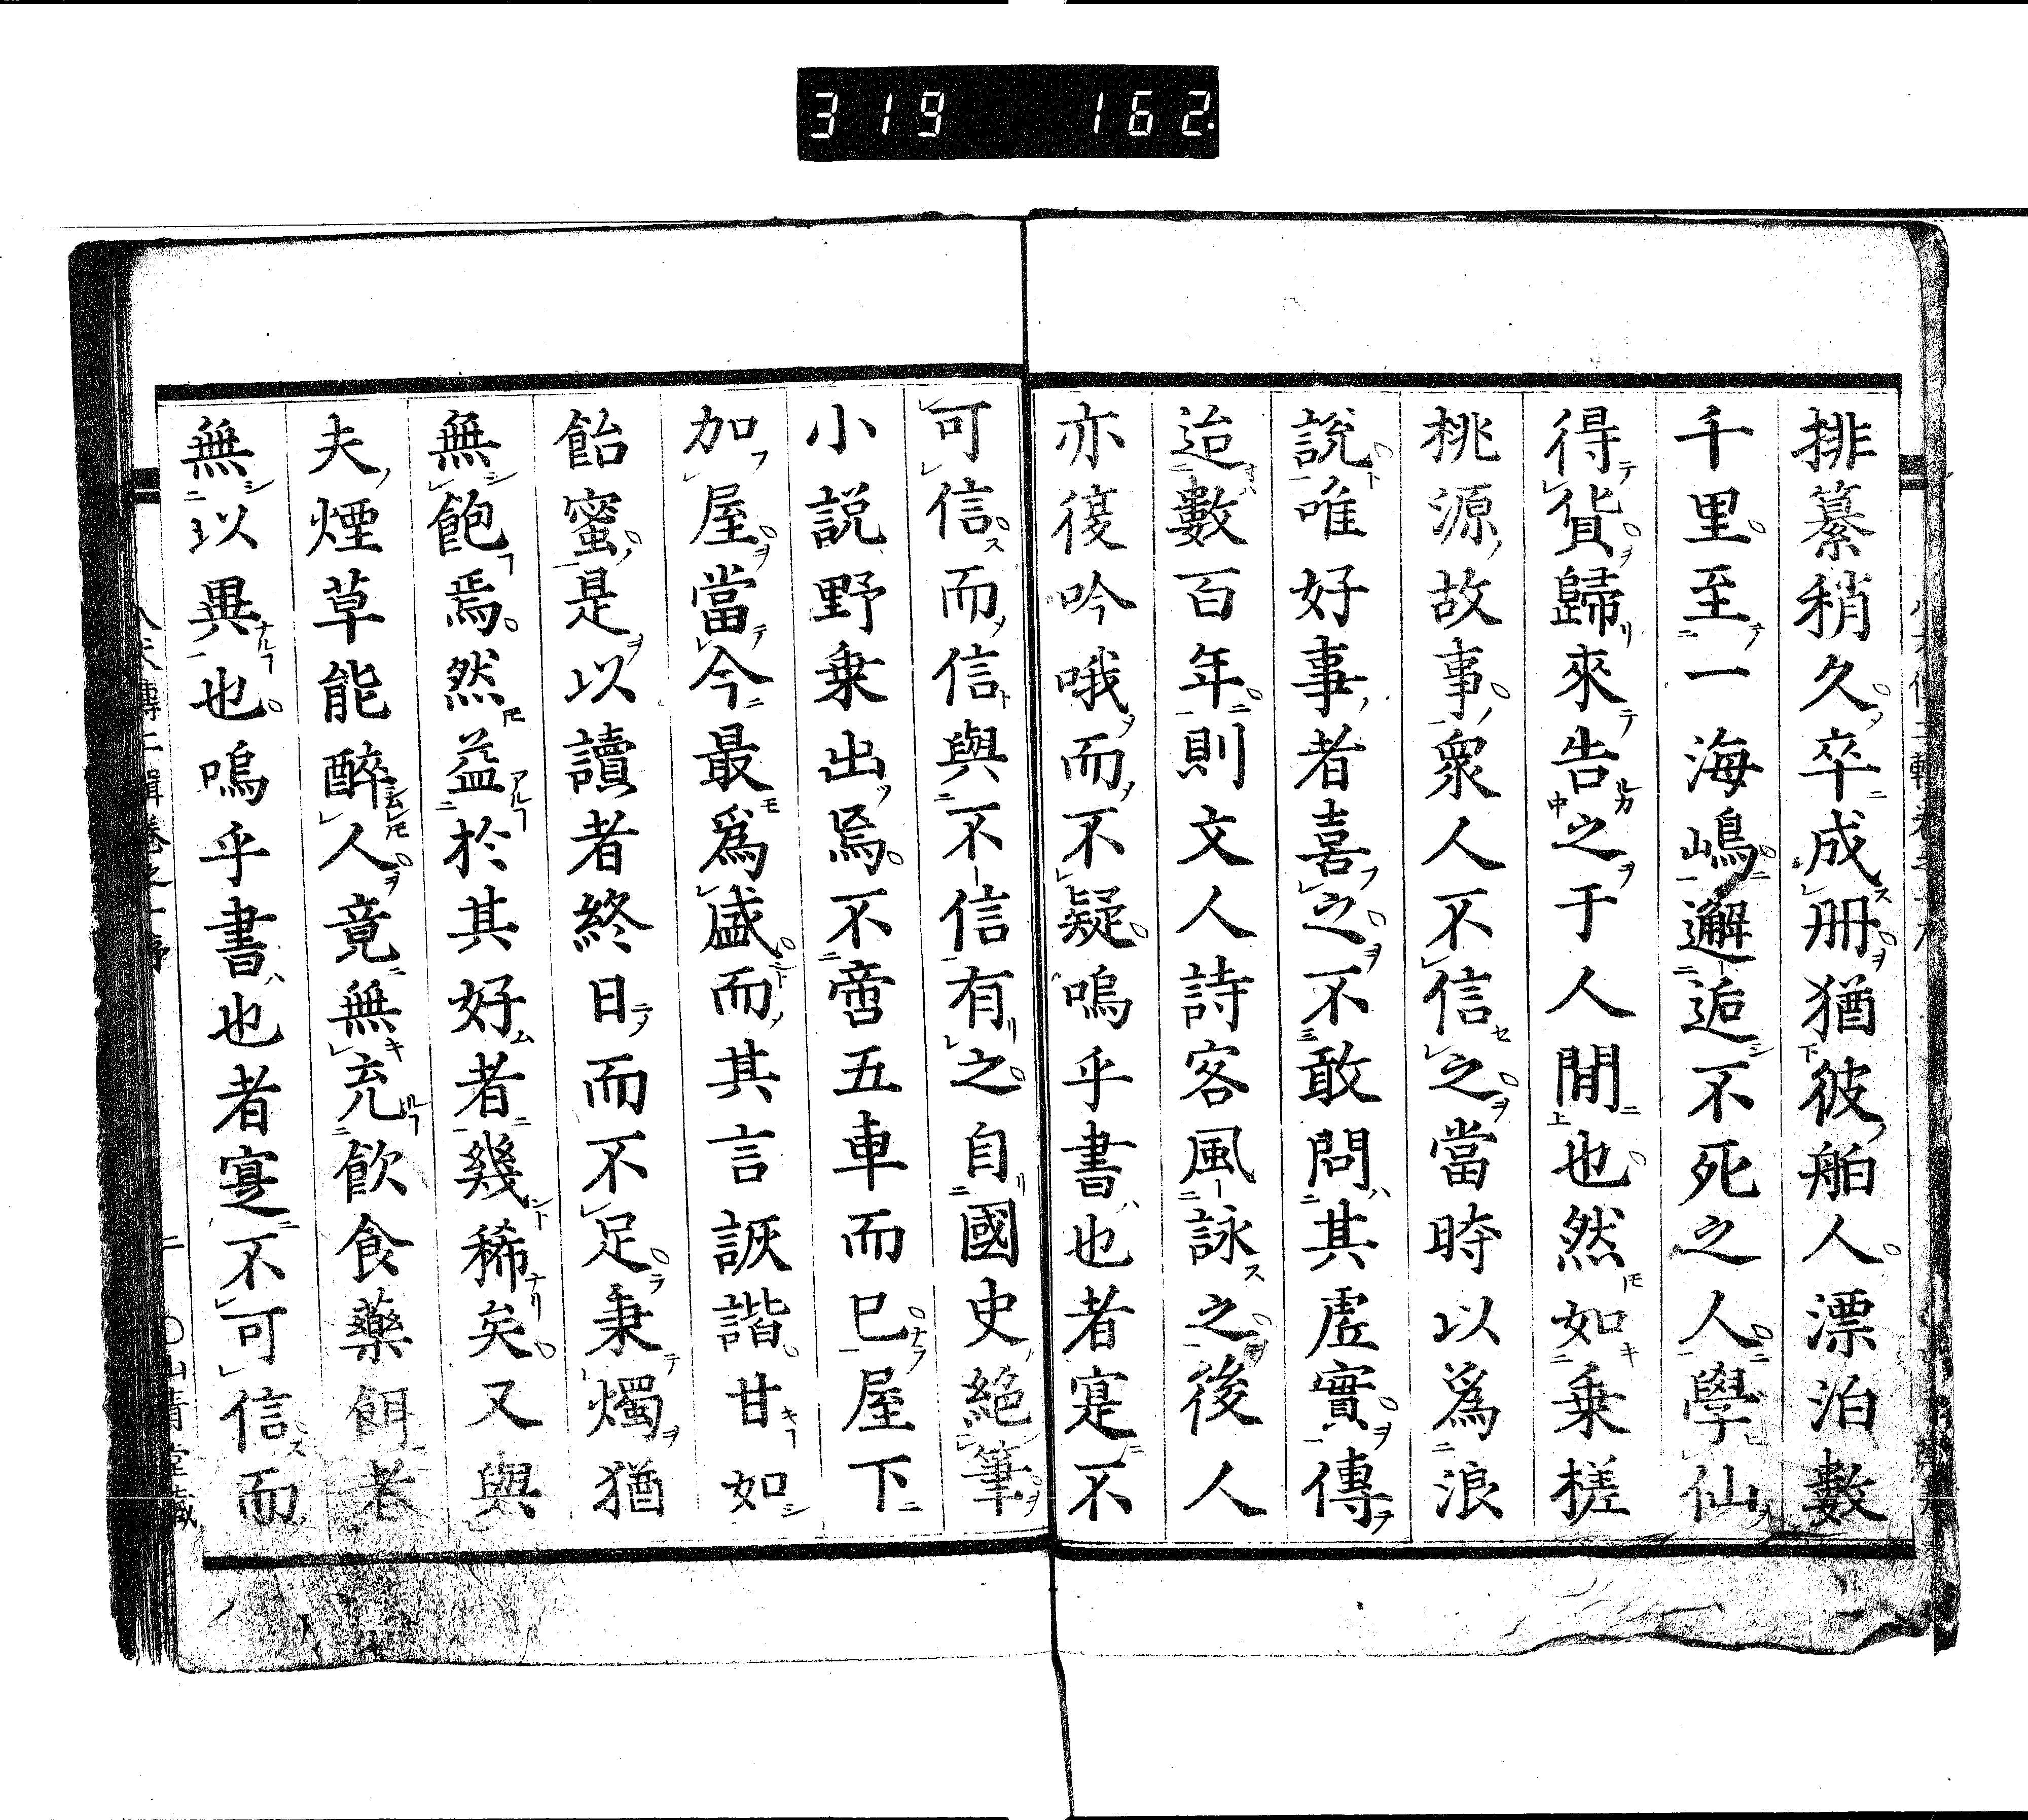 319 162.
排纂稍久卒成册猶彼舶人漂泊數
千里至一海嶋邂逅不死之人學仙
得貨歸來告之于人間也然如乗槎
桃源故事衆人不信之當時以爲浪
說唯好事者喜之不敢問其虛實傳
迨數百年則文人詩客風詠之後人
亦復吟哦而不疑嗚乎書也者寔不
可信而信與不信有之自國史絕筆
小說野乗出焉不啻五車而已屋下
加屋當今最爲盛而其言詼諧甘如
飴蜜是以讀者終日而不足秉燭猶
無飽焉然益於其好者幾稀矣又與
夫煙草能醉人竟無充飲食藥餌者
無以異也嗚乎書也者寔不可信而